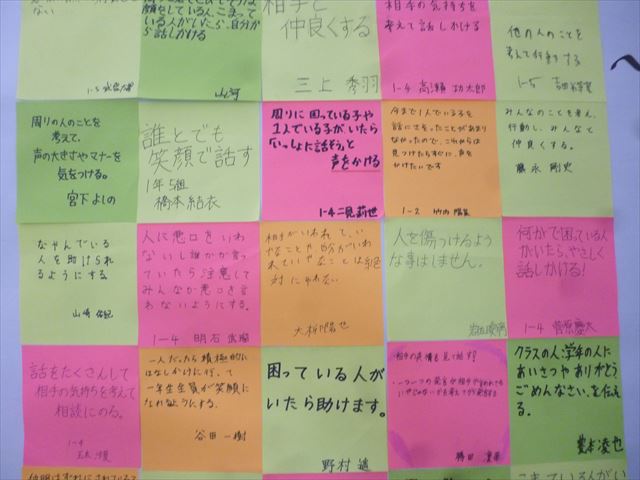 ない
顔をしている人、こまって
いる人がいたら、自分か
ら話しかける
相手と
仲良くする
三上 秀羽
相手の気持ちを
考えて話しかける
1-4 高瀬 功太郎
他の人のことを
考えて行動する
1-5
周りの人のことを
考えて、
声の大きさやマナーを
気をつける。
宮下 よしの
誰とでも
笑顔で話す
1年5組
橋本 結衣
周りに困っている子や
1人でいる子がいたら
「いっしょに話そう」と
声をかける
1-4 二見 莉世
今まで1人でいる子を
話にさそったことがあまり
なかったので、これからは
見つけたらすぐに、声を
かけたいです
1-2
みんなのことを考え、
行動し、みんなと
仲良くする。
藤永 剛史
なやんでいる
人を助けられ
るようにする。
山崎
人に悪口をいわ
ないし誰かが言っ
ていたら注意して
みんなが悪口を言
わないようにする。
1-4 明石
相手がいわれて、い
やなことや自分がいわ
れていやなことは絶
対にいわない
人を傷つけるよう
な事はしません。
何かで困っている人
がいたら、やさしく
話しかける!
1-4 菅原
話をたくさんして
相手の気持ちを考えて
相談にのる。
1-4
一人だったら積極的に
はなしかけに行って
一年生全員が笑顔に
なれるようにする。
谷田 一樹
困っている人が
いたら助けます。
野村 遥
・相手の表情を見て話す!
クラスの人、学年の人に
あいさつやありがとう
ごめんなさい。を伝え
る。
凌也